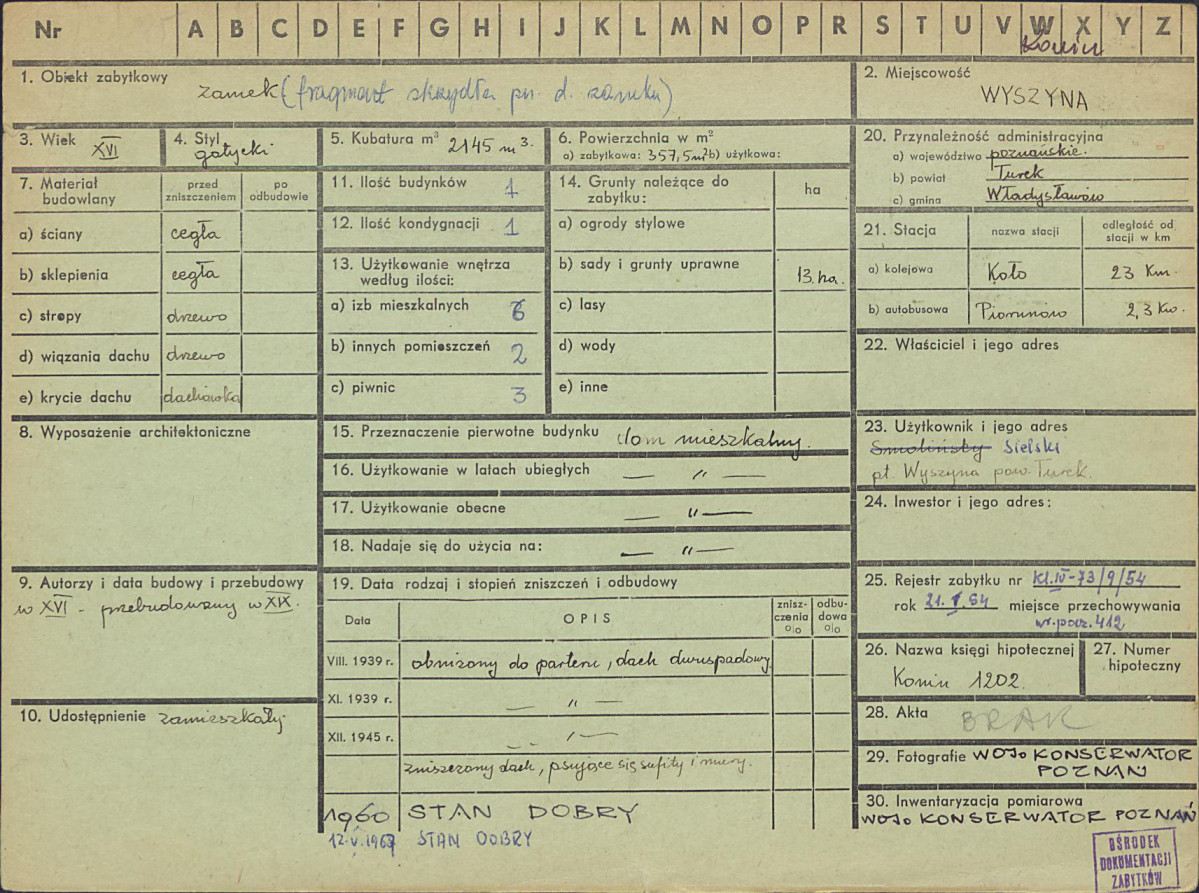 Nr A B C D E F G H I J K L M N O P R S T U V W X Y Z
Konin
1. Obiekt zabytkowy zamek (fragment skrzydła pn. d. zamku)
2. Miejscowość
WYSZYNA
3. Wiek XVI
4. Styl gotycki
5. Kubatura m³ 2145 m³.
6. Powierzchnia w m²
a) zabytkowa: 357,5m² b) użytkowa:
7. Materiał budowlany
przed zniszczeniem
po odbudowie
a) ściany cegła
b) sklepienia cegła
c) stropy drzewo
d) wiązania dachu drzewo
e) krycie dachu dachówka
8. Wyposażenie architektoniczne
9. Autorzy i data budowy i przebudowy
w XVI - przebudowany w XIX.
10. Udostępnienie zamieszkały
11. Ilość budynków 1
12. Ilość kondygnacji 1
13. Użytkowanie wnętrza
według ilości:
a) izb mieszkalnych
b) innych pomieszczeń 2
c) piwnic 3
14. Grunty należące do
zabytku:
ha
a) ogrody stylowe
b) sady i grunty uprawne 13. ha.
c) lasy
d) wody
e) inne
15. Przeznaczenie pierwotne budynku dom mieszkalny.
16. Użytkowanie w latach ubiegłych — " —
17. Użytkowanie obecne — " —
18. Nadaje się do użycia na: — " —
19. Data rodzaj i stopień zniszczeń i odbudowy
Data OPIS
znisz-
czenia
o|o
odbu-
dowa
o|o
VIII. 1939 r. obniżony do parteru, dach dwuspadowy
XI. 1939 r. — " —
XII. 1945 r. — " —
zniszczony dach, psujące się sufity i mury.
1960 STAN DOBRY
12.V.1967 STAN DOBRY
20. Przynależność administracyjna
a) województwo poznańskie.
b) powiat Turek
c) gmina Władysławów
21. Stacja
nazwa stacji
odległość od
stacji w km
a) kolejowa Koło 23 Km.
b) autobusowa Piorunów 2,3 Km.
22. Właściciel i jego adres
23. Użytkownik i jego adres
Smoliński Sielski
pt. Wyszyna pow. Turek.
24. Inwestor i jego adres:
25. Rejestr zabytku nr kl.IV-73/9/54
rok 21. V. 54 miejsce przechowywania
412
26. Nazwa księgi hipotecznej
Konin 1202.
27. Numer
hipoteczny
28. Akta BRAK
29. Fotografie WOJ. KONSERWATOR
POZNAŃ
30. Inwentaryzacja pomiarowa
WOJ. KONSERWATOR POZNAŃ
OŚRODEK
DOKUMENTACJI
ZABYTKÓW